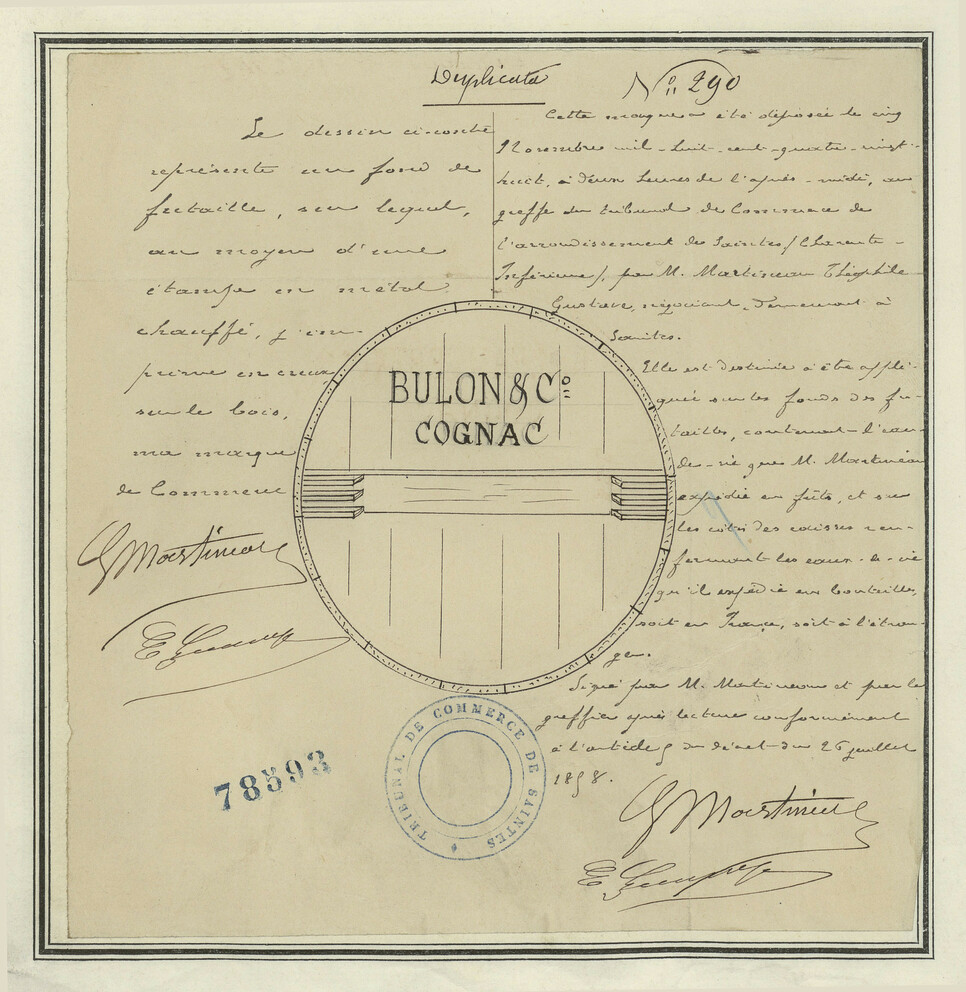 Duplicata
N° 290
Le dessin ci-contre
représente un fond de
futaille, sur lequel,
au moyen d'une
étampe en métal
chauffé, j'im-
prime en creux
sur le bois,
ma marque
de Commerce
G Martineau
Cette marque a été déposée le cinq
Novembre mil-huit-cent-quatre-vingt-
huit, à deux heures de l'après-midi, au
greffe du tribunal de Commerce de
l'arrondissement de Saintes (Charente-
Inférieure), par M. Martineau Théophile
Gustave, négociant, demeurant à
Saintes.
Elle est destinée à être appli-
quée sur les fonds des fu-
tailles, contenant l'eau-
de-vie que M. Martineau
expédie en fûts, et sur
les côtés des caisses ren-
fermant les eaux-de-vie
qu'il expédie en bouteilles,
soit en France, soit à l'étran-
ger.
Signé par M. Martineau et par le
greffier après lecture conformément
à l'article 5 du décret du 26 juillet
1858.
G Martineau
BULON & Cº
COGNAC
TRIBUNAL DE COMMERCE DE SAINTES
78593